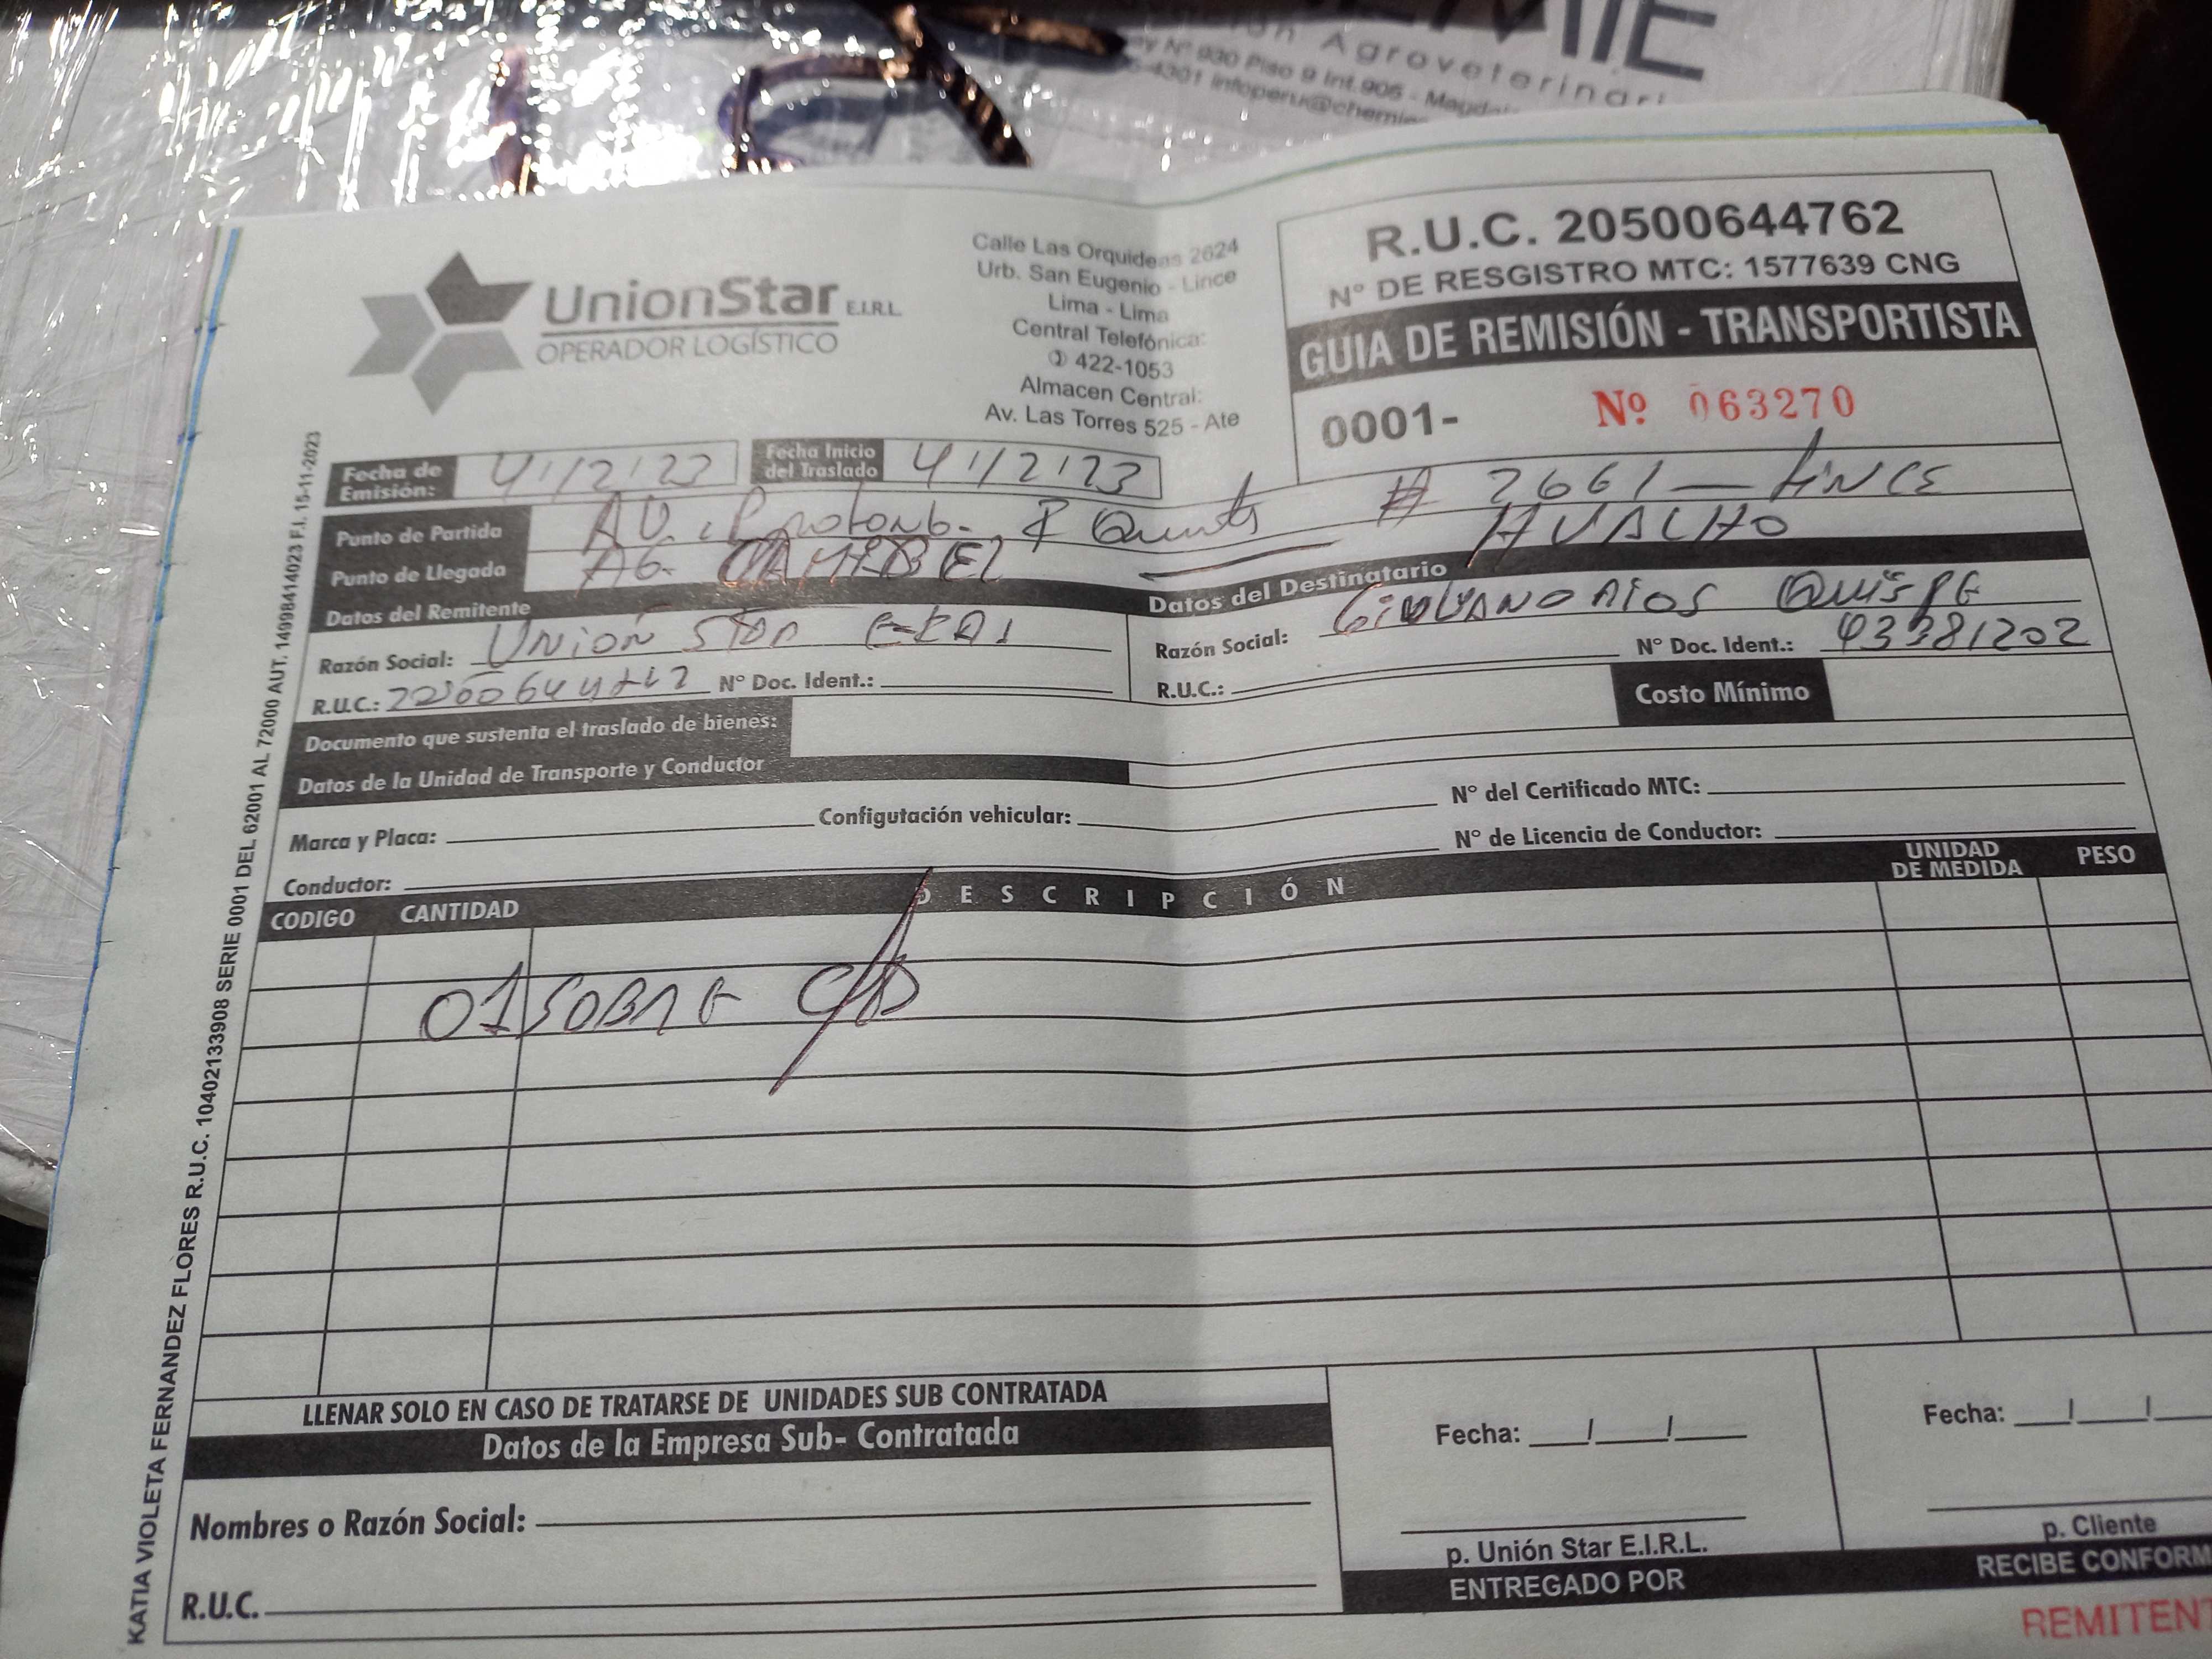 EMIE
ón Agroveterinari
y Nº 930 Piso 9 Int.905 - Magda
-4301 infoperu@chemie
UnionStar E.I.R.L.
OPERADOR LOGÍSTICO
Calle Las Orquideas 2624
Urb. San Eugenio - Lince
Lima - Lima
Central Telefónica:
422-1053
Almacen Central:
Av. Las Torres 525 - Ate
R.U.C. 20500644762
Nº DE RESGISTRO MTC: 1577639 CNG
GUIA DE REMISIÓN - TRANSPORTISTA
0001- Nº 063270
Fecha de Emisión: 4/12/23 Fecha Inicio del Traslado 4/12/23
Punto de Partida AV. # 2661 - LINCE
Punto de Llegada AG.
Datos del Remitente Datos del Destinatario
Razón Social: UNIÓN STAR Razón Social: RIOS QUISPE
R.U.C.: Nº Doc. Ident.: R.U.C.: Nº Doc. Ident.: 43381202
Costo Mínimo
Documento que sustenta el traslado de bienes:
Datos de la Unidad de Transporte y Conductor
Marca y Placa: Configutación vehicular: Nº del Certificado MTC:
Conductor: Nº de Licencia de Conductor:
CODIGO CANTIDAD DESCRIPCIÓN UNIDAD DE MEDIDA PESO
01 SOBRE
LLENAR SOLO EN CASO DE TRATARSE DE UNIDADES SUB CONTRATADA
Datos de la Empresa Sub- Contratada
Nombres o Razón Social:
R.U.C.
Fecha: / /
p. Unión Star E.I.R.L.
ENTREGADO POR
Fecha: / /
p. Cliente
RECIBE CONFORM
REMITENT
KATIA VIOLETA FERNANDEZ FLORES R.U.C. 10402133908 SERIE 0001 DEL 62001 AL 72000 AUT. 14098414023 F.I. 15-11-2023